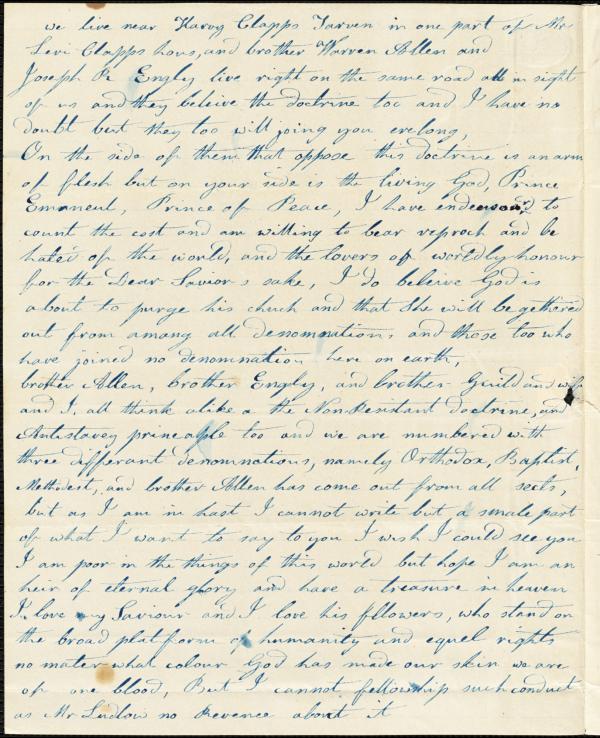 we live near Harvy Clapps Tarven in one part of Mr
Levi Clapps hous, and brother Warren Allen and
Joseph R. Engly live right on the same road all in sight
of us and they beleive the doctrine too and I have no
doubt but they too will joing you erelong,
On the side of them that oppose this doctrine is an arm
of flesh but on your side is the living God, Prince
Emaneul, Prince of Peace, I have endeavoard to
count the cost and am willing to bear reproch and be
hated of the world, and the lovers of worldly honour
for the Dear Savior s sake, I do beleive God is
about to purge his chuch and that she will be gethered
out from amang all denomnations and those too who
have joined no denomnation here on earth,
brother Allen, brother Engly, and brother Guild and wife
and I, all think alike a the Non Resistant doctrine, and
Antislavey prineaple too and we are numbered with
three differant denomnations, namely Orthodox, Baptist,
Methodest, and brother Allen has come out from all sects,
but as I am in hast I cannot write but a smale part
of what I want to say to you I wish I could see you
I am poor in the things of this world but hope I am an
heir of eternal glory and have a treasure in heaven
I love my Saviour and I love his fllowers, who stand on
the broad platform of humanity and equel rights
no mater what colour God has made our skin we are
of one blood, But I cannot fellowship such conduct
as Mr Ludlow no Revence about it